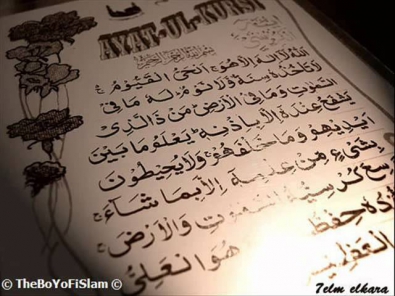 AYAT-UL-KURSI
اَللّٰهُ لَا اِلٰهَ اِلَّا هُوَ اَلْحَىُّ الْقَيُّوْمُ
لَا تَأْخُذُهٗ سِنَةٌ وَّلَا نَوْمٌ لَهٗ مَا فِى
السَّمٰوٰتِ وَمَا فِى الْاَرْضِ مَنْ ذَا الَّذِىْ
يَشْفَعُ عِنْدَهٗ اِلَّا بِاِذْنِهٖ يَعْلَمُ مَا بَيْنَ
اَيْدِيْهِمْ وَمَا خَلْفَهُمْ وَلَا يُحِيْطُوْنَ
بِشَىْءٍ مِّنْ عِلْمِهٖ اِلَّا بِمَا شَآءَ
كُرْسِيُّهُ السَّمٰوٰتِ وَالْاَرْضَ
هُوَ الْعَلِىُّ
الْعَظِيْمُ
© TheBoYoFiSlam ©
7elm elkara